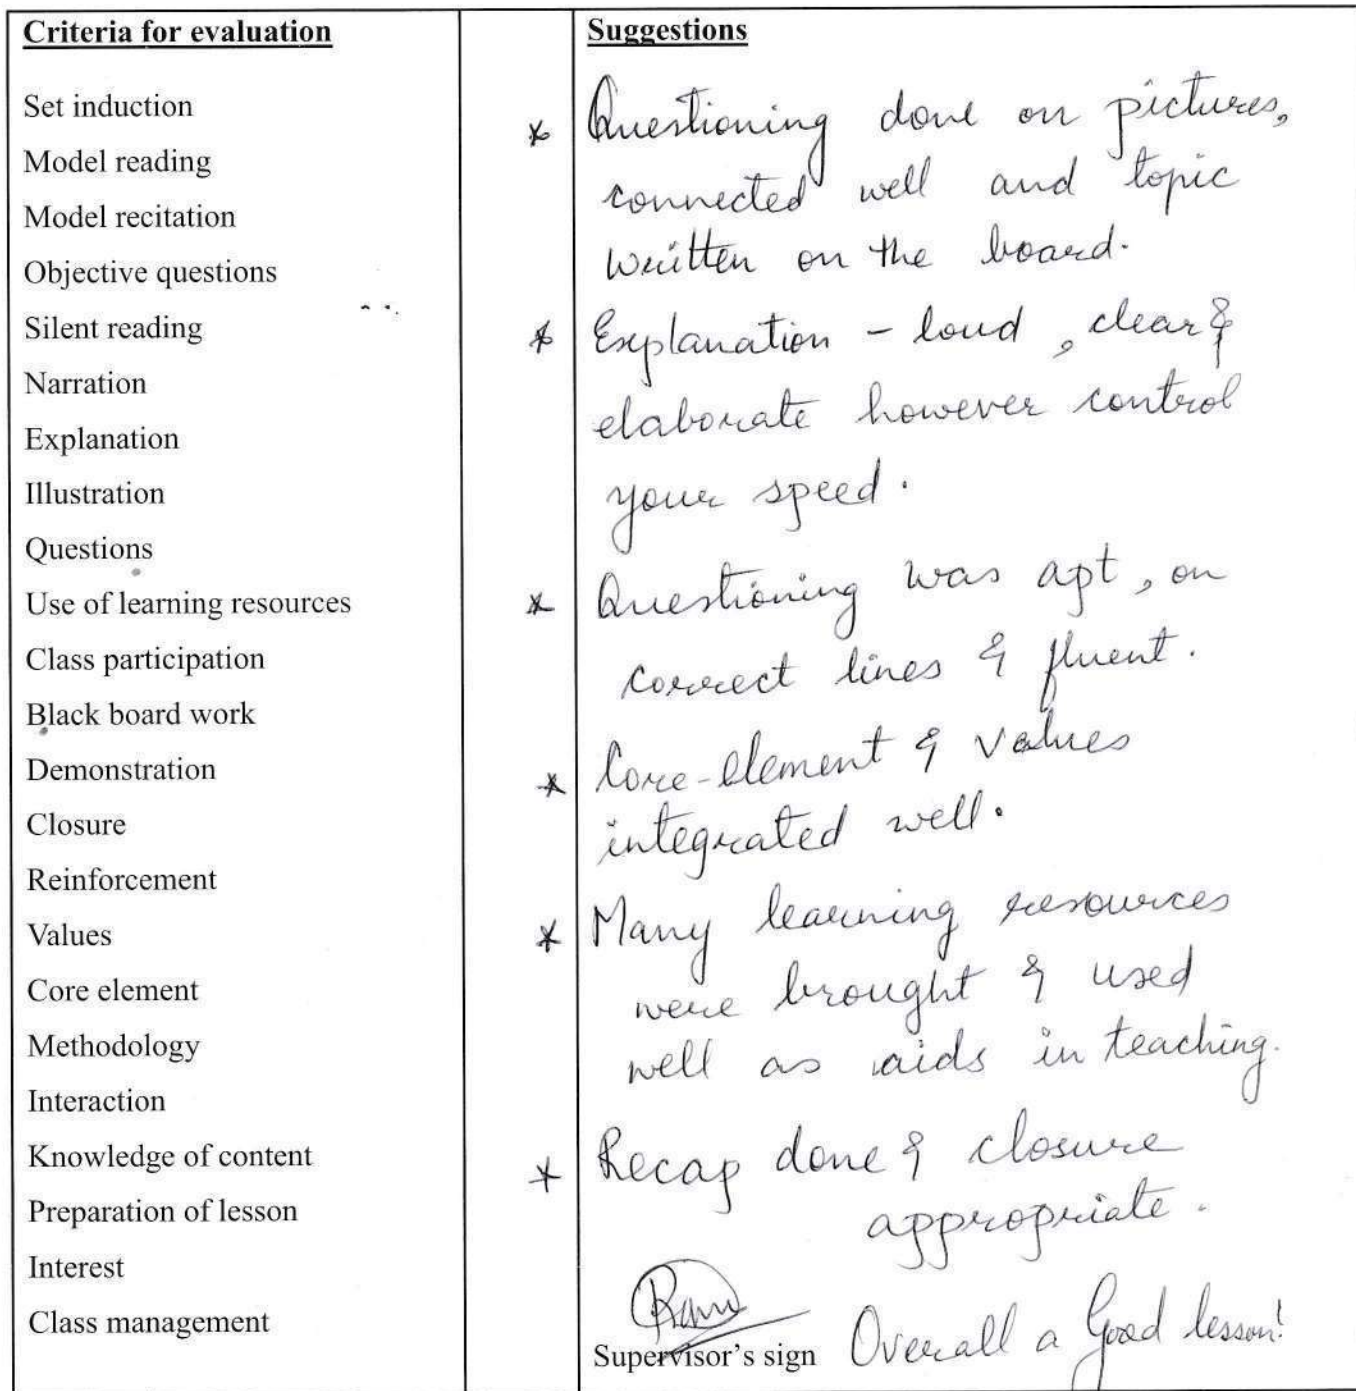 Criteria for evaluation
Set induction
Model reading
Model recitation
Objective questions
Silent reading
Narration
Explanation
Illustration
Questions
Use of learning resources
Class participation
Black board work
Demonstration
Closure
Reinforcement
Values
Core element
Methodology
Interaction
Knowledge of content
Preparation of lesson
Interest
Class management
Suggestions
* Questioning done on pictures,
connected well and topic
written on the board.
* Explanation - loud, clear &
elaborate however control
your speed.
* Questioning was apt, on
correct lines & fluent.
* Core-element & values
integrated well.
* Many learning resources
were brought & used
well as aids in teaching.
* Recap done & closure
appropriate.
Supervisor's sign Overall a Good lesson!